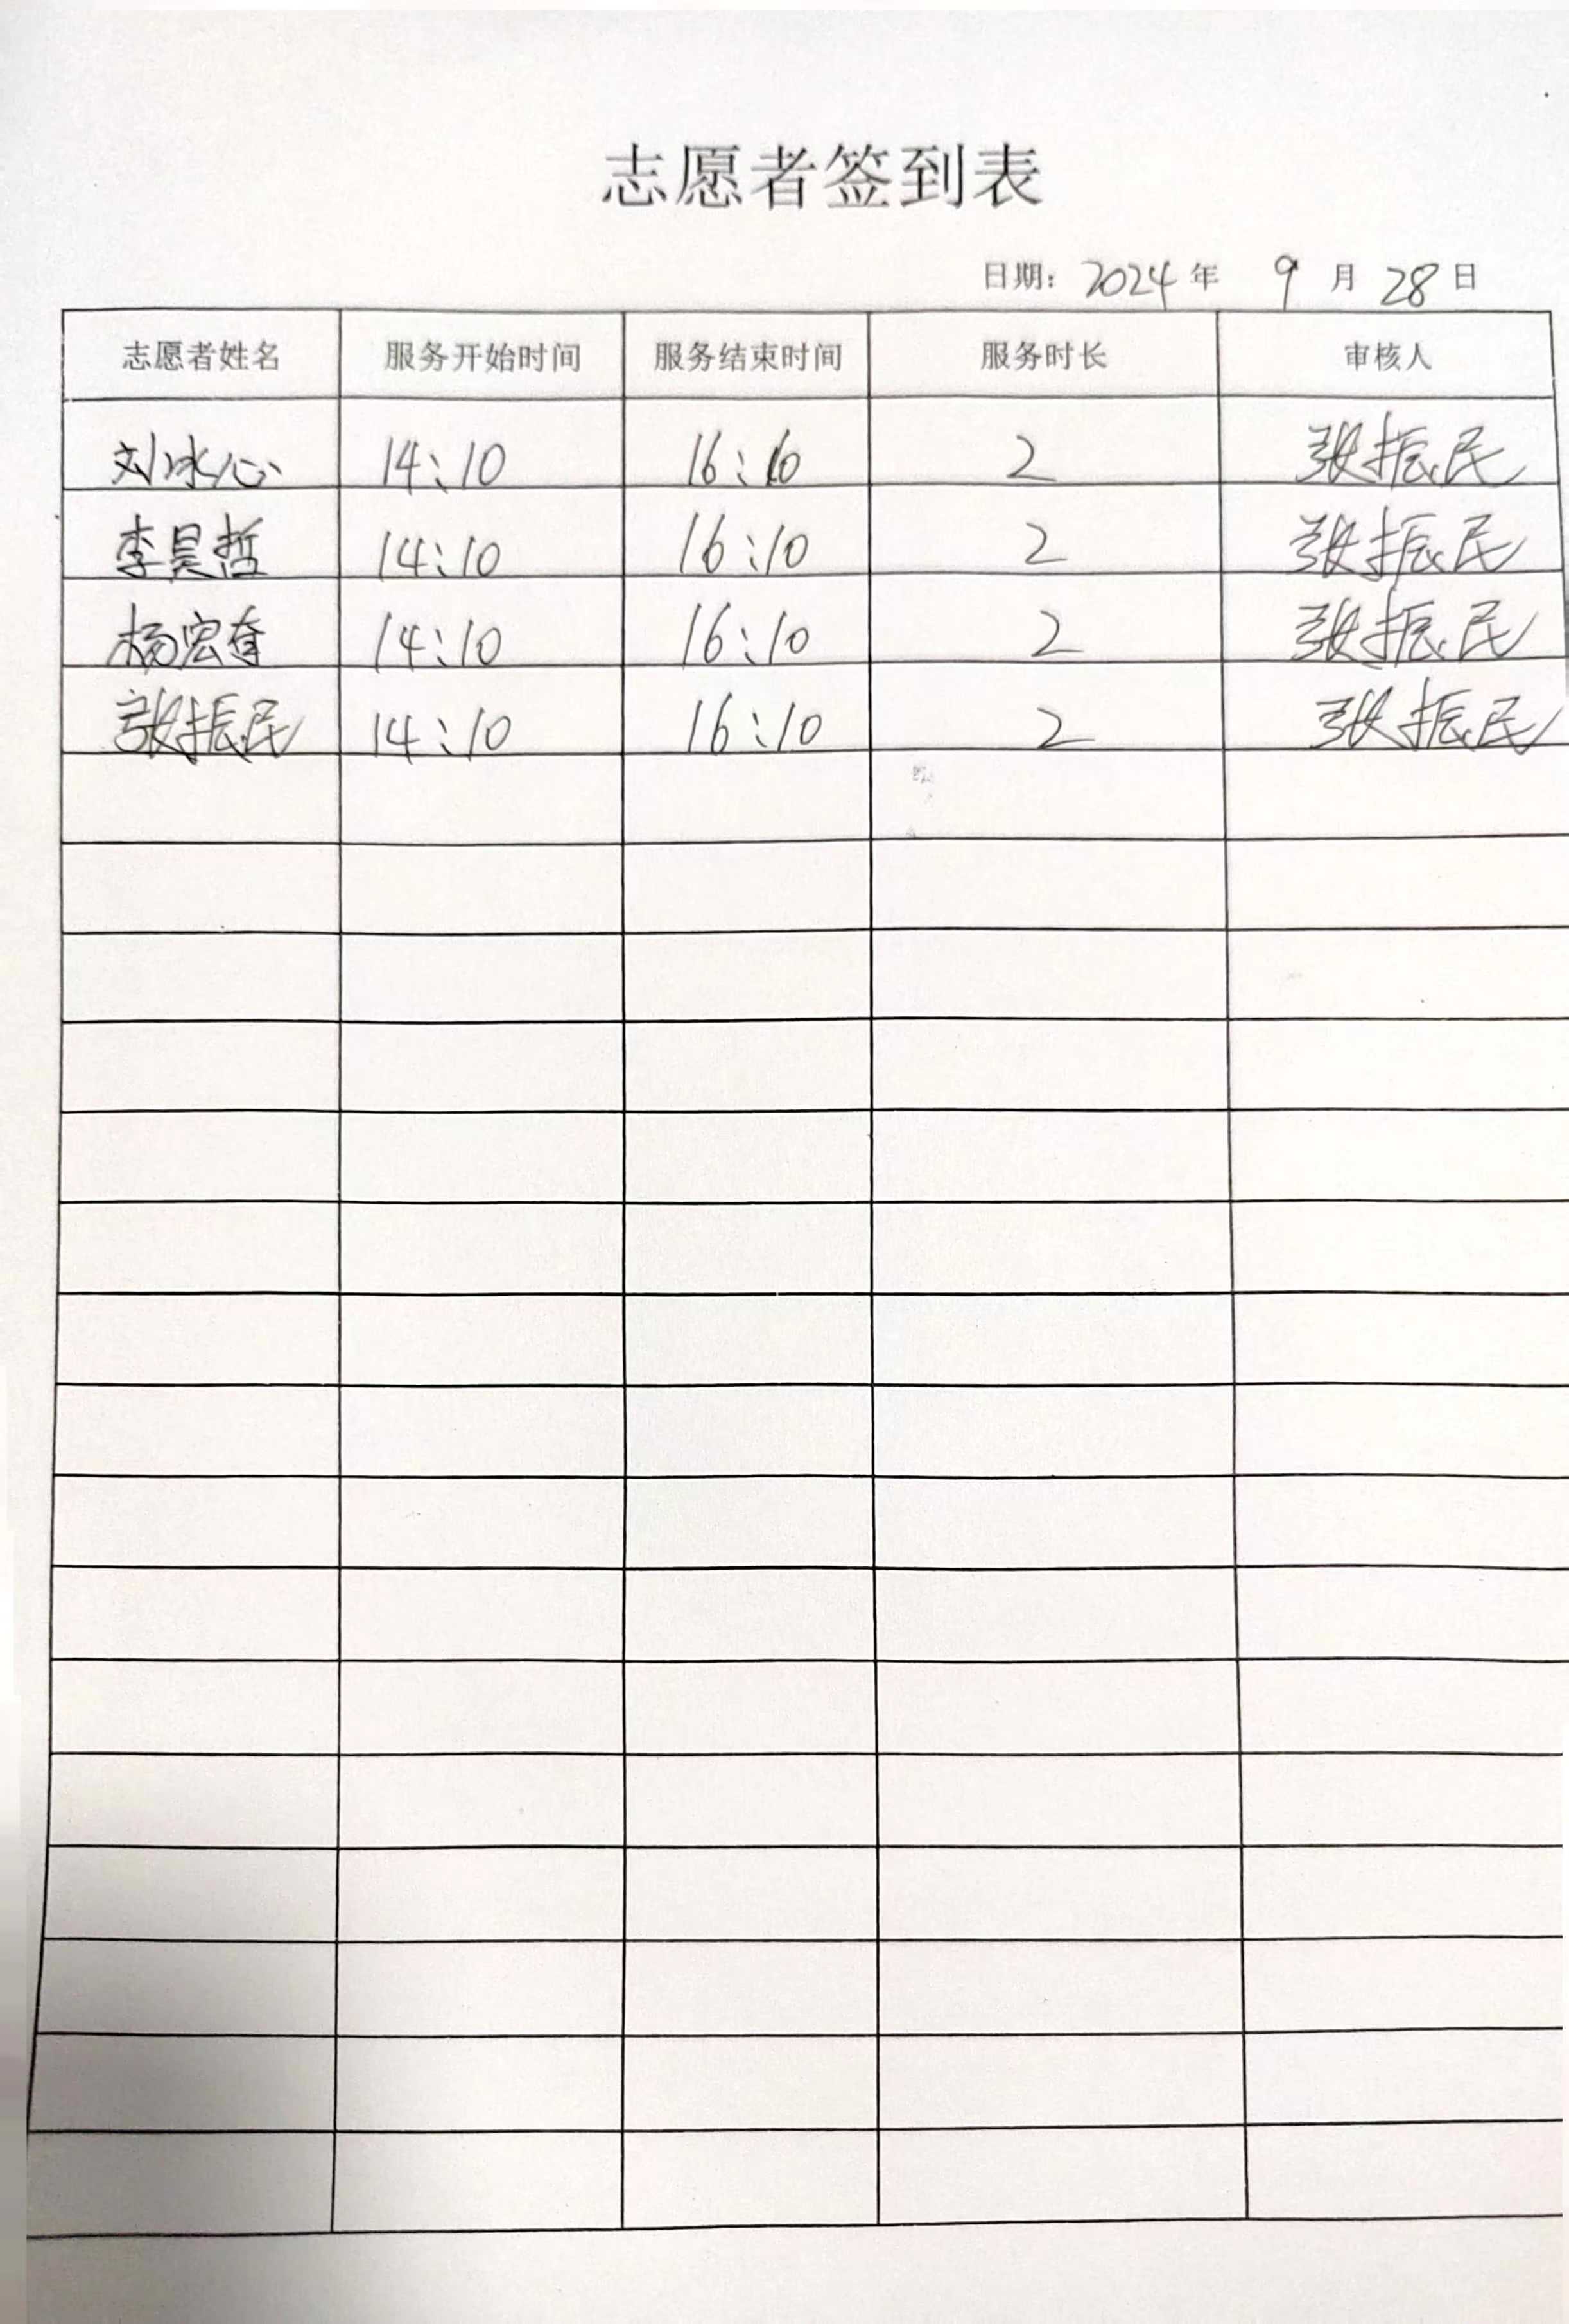 志愿者签到表
日期: 2024 年 9 月 28 日
志愿者姓名 服务开始时间 服务结束时间 服务时长 审核人
刘冰心 14:10 16:10 2 张振民
李昊哲 14:10 16:10 2 张振民
杨宏奞 14:10 16:10 2 张振民
张振民 14:10 16:10 2 张振民